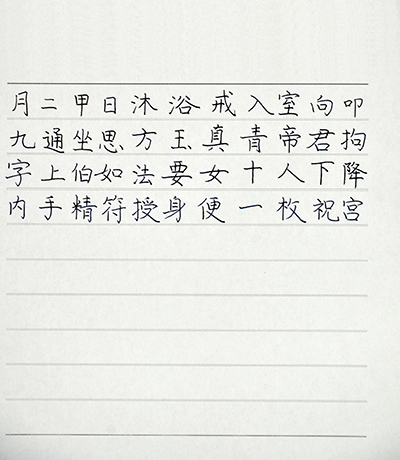 月二甲日沐浴戒入室向叩
九通坐思方玉真青帝君拘
字上伯如法要女十人下降
内手精符授身便一枚祝宫